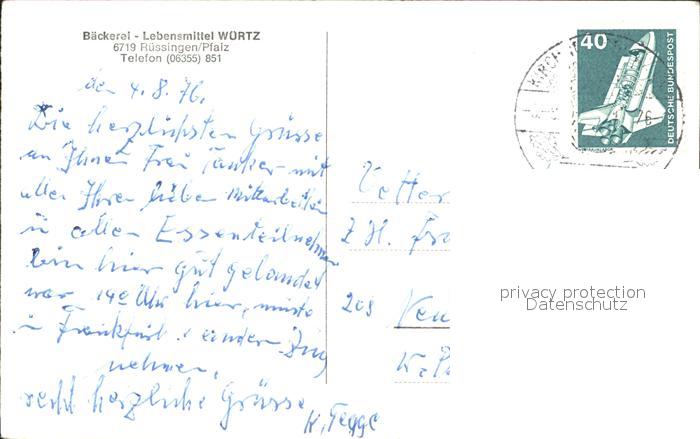 Bäckerei - Lebensmittel WÜRTZ
6719 Rüssingen/Pfalz
Telefon (06355) 851
den 4.8.76.
Die herzlichsten Grüsse
an Ihnen Frau mit
allen Ihren lieben Mitarbeiter
u allen Essenteilnehmer
bin hier gut gelandet
war 14 Uhr hier, musste
in Frankfurt einen Zug
nehmen,
recht herzliche Grüsse
40
DEUTSCHE BUNDESPOST
KIRCH
76
Vetter
z H. Fr
privacy protection
Datenschutz